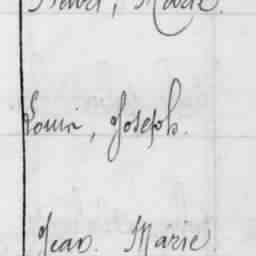 Marie.
Louis, Joseph.
Jean. Marie.